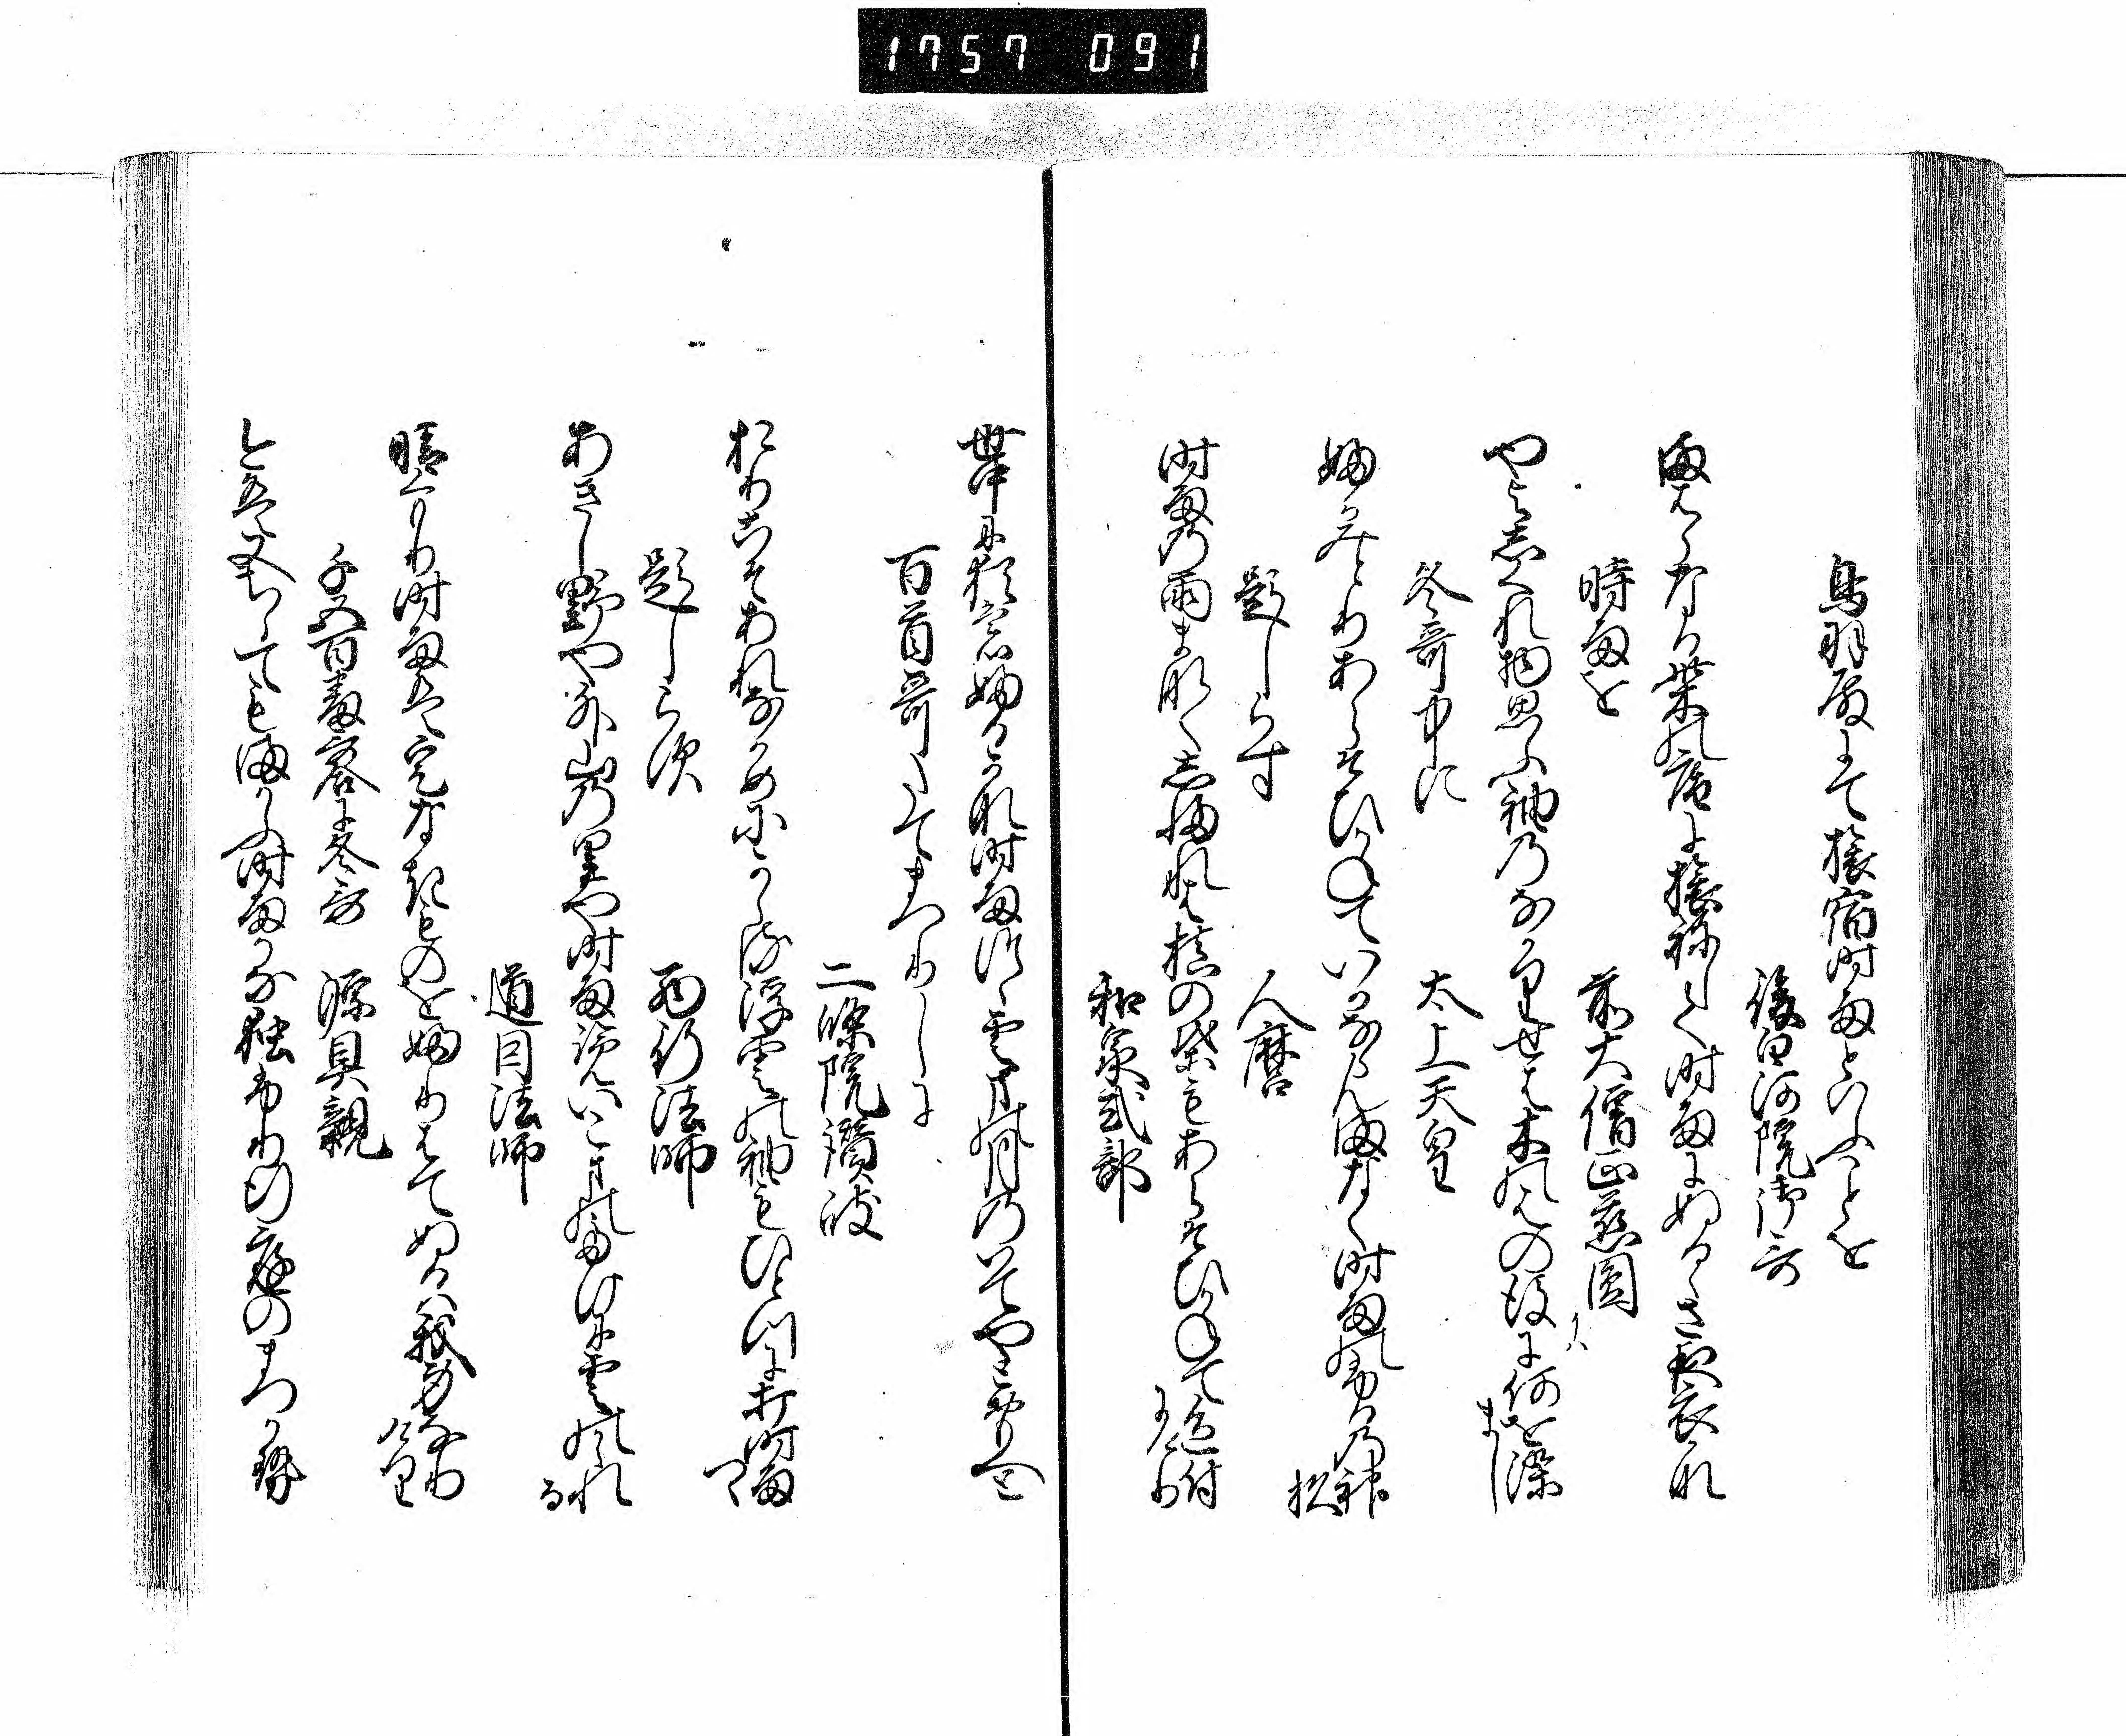 1757 091
鳥羽殿にて旅宿時雨といふことを
後白河院御哥
まはらなる柴の庵に旅ねして時雨にぬるゝさ夜衣かな
時雨を
前大僧正慈圓
やよ志くれ物思ふ袖のなかりせは木の葉の後に何を染まし
冬哥中に
太上天皇
ふかみとりあらそひかねていかならんまなく時雨ふるの神杉
題しらす
人麿
時雨の雨まなくしふれは槙の葉もあらそひかねて色付にけり
和泉式部
世中に猶もふるかな時雨つゝ雲間の月のいてやと思へと
百首哥たてまつりしに
二條院讃岐
おりこそあれなかめにかゝる浮雲の袖もひとつに打時雨つゝ
題しらす
西行法師
あきしのや外山の里や時雨覧いこまのたけに雲のかゝれる
道因法師
晴くもり時雨は定なきものをふりはてぬるは我身なりけり
千五百番哥合に冬哥
源具親
今は又ちらてもまかふ時雨かな独ふり行庭のまつかせ